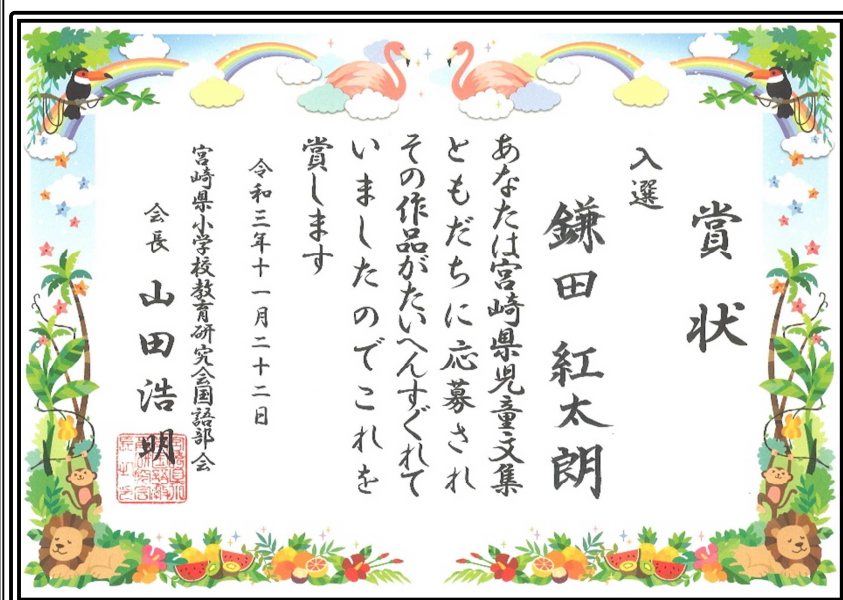 賞状
入選
鎌田 紅太朗
あなたは宮崎県児童文集
ともだちに応募され
その作品がたいへんすぐれて
いましたのでこれを
賞します
令和三年十一月二十二日
宮崎県小学校教育研究会国語部会
会長 山田浩明